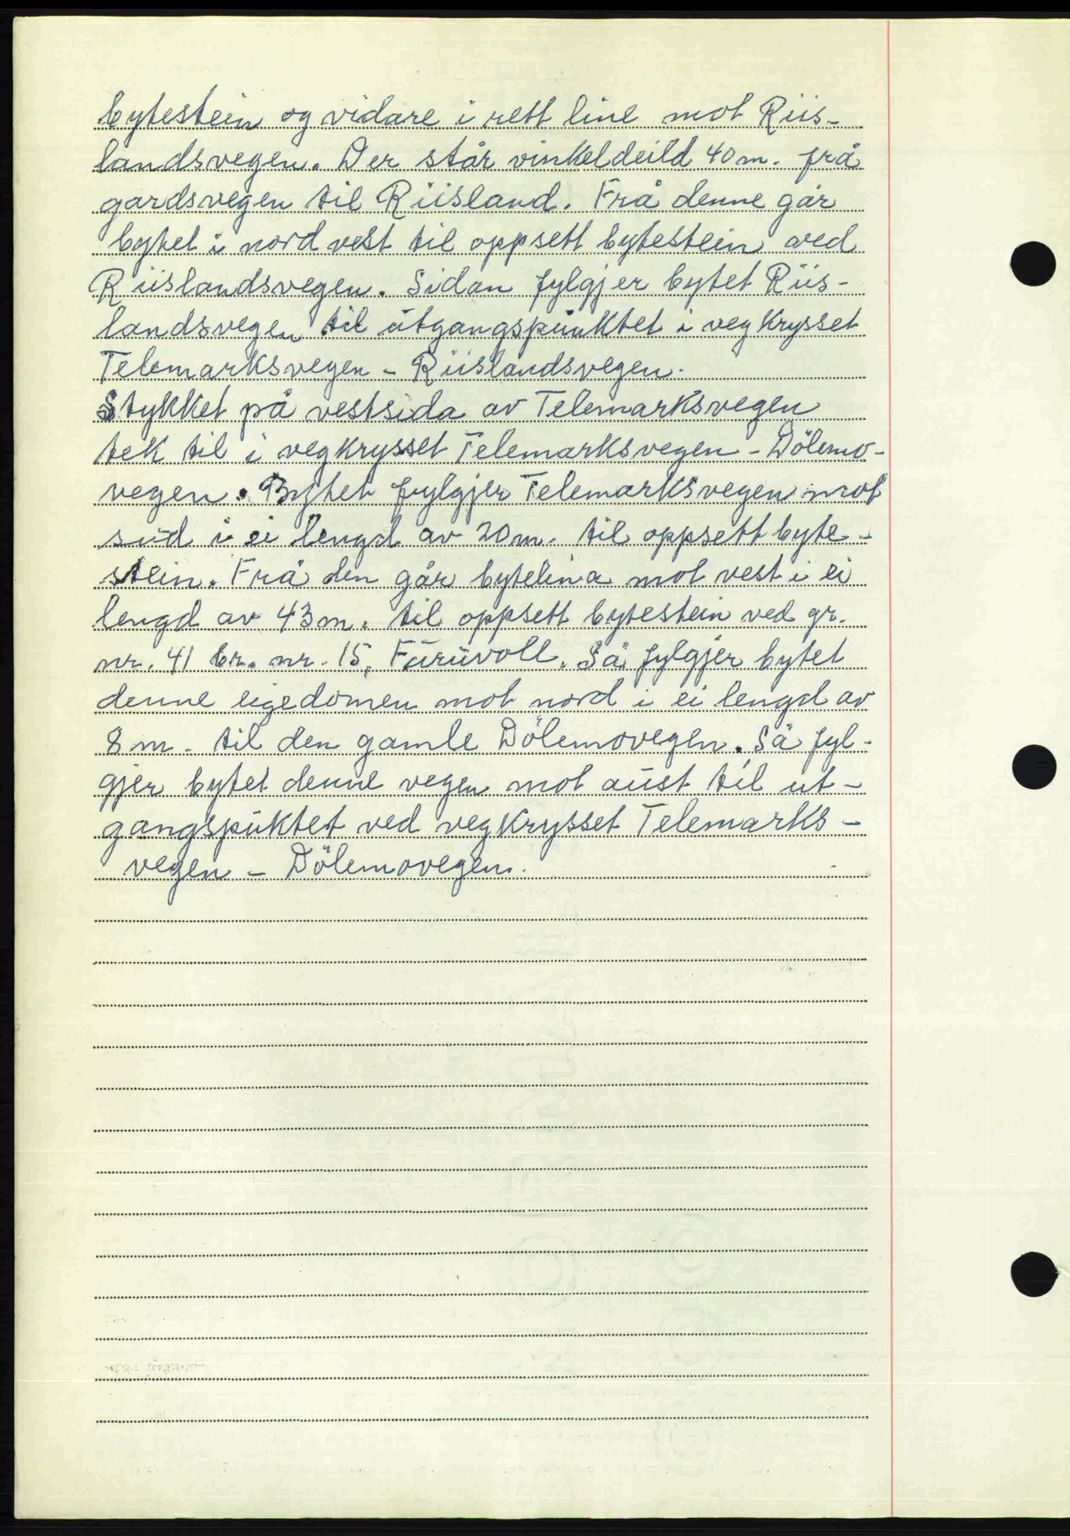 bytestein og vidare i rett line mot Riis-
landsvegen. Der står vinkeldeild 40 m. frå
gardsvegen til Riisland. Frå denne går
bytet i nord vest til oppsett bytestein ved
Riislandsvegen. Sidan fylgjer bytet Riis-
landsvegen til utgangspunktet i vegkrysset
Telemarksvegen - Riislandsvegen.
Stykket på vestsida av Telemarksvegen
tek til i vegkrysset Telemarksvegen - Dölemo-
vegen. Bytet fylgjer Telemarksvegen mot
sud i ei lengd av 20 m. til oppsett byte-
stein. Frå den går bytelina mot vest i ei
lengd av 43 m. til oppsett bytestein ved gr.
nr. 41 br. nr. 15, Furuvoll. Så fylgjer bytet
denne eigedomen mot nord i ei lengd av
8 m. til den gamle Dölemovegen. Så fyl-
gjer bytet denne vegen mot aust til ut-
gangspuktet ved vegkrysset Telemarks-
vegen - Dölemovegen.